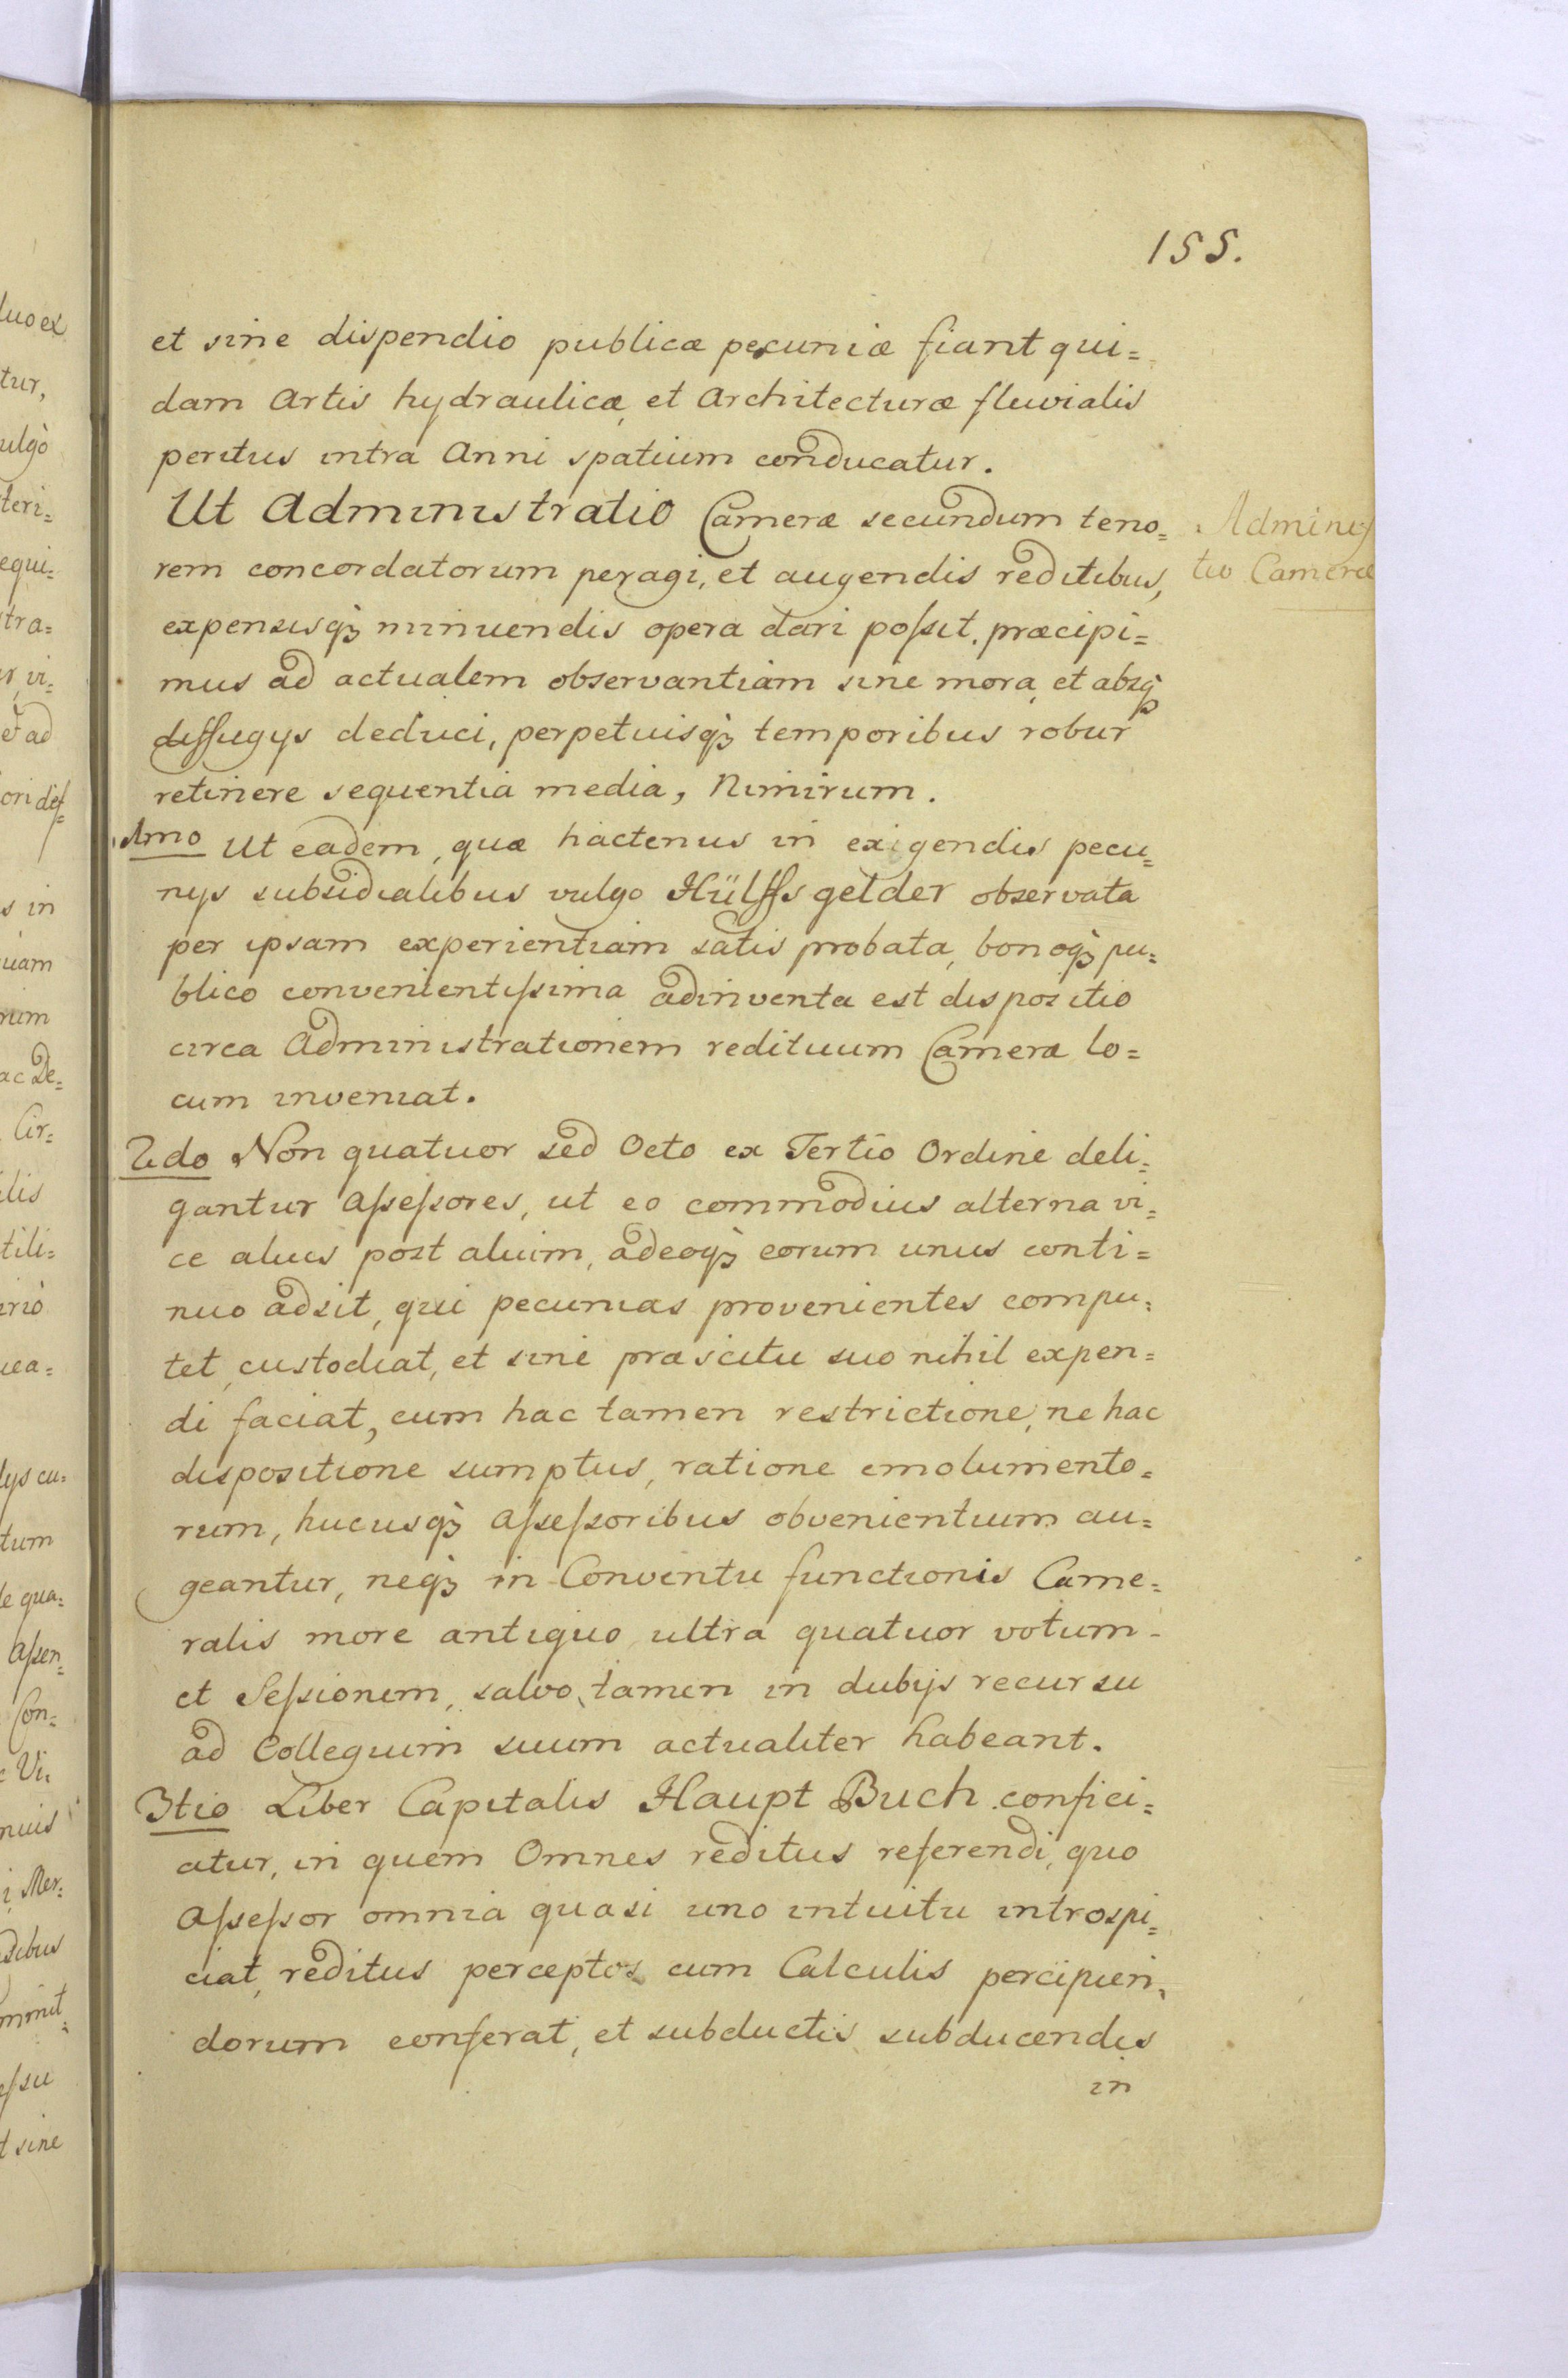 155.
et sine dispendio publicæ pecuniæ fiant qui=
dam Artis hydraulicæ, et Architecturæ fluvialis
peritus intra Anni spatium conducatur.
Ut Administratio Cameræ secundum teno=
rem concordatorum peragi, et augendis reditibus,
expensisq3 minuendis opera dari poſsit, præcipi=
mus ad actualem observantiam sine mora, et absq3
diffugijs deduci, perpetuisq3 temporibus robur
retinere sequentia media, Nimirum.
Adminis
tio Cameræ
1mo Ut eadem, quæ hactenus in exigendis pecu=
nijs subsidialibus vulgo Hülffsgelder observata
per ipsam experientiam satis probata, bonoq3 pu=
blico convenientiſsima adinventa est dispositio
circa Administrationem redituum Camera lo=
cum inveniat.
2do Non quatuor sed Octo ex Tertio Ordine deli=
gantur Aſseſsores, ut eo commodius alterna vi=
ce alius post alium, adeoq3 eorum unus conti=
nuo adsit, qui pecunias provenientes compu=
tet, custodiat, et sine præscitu suo nihil expen=
di faciat, cum hac tamen restrictione, ne hac
dispositione sumptus, ratione emolumento=
rum, hucusq3 Aſseſsoribus obvenientium au=
geantur, neq3 in Conventu functionis Came=
ralis more antiquo ultra quatuor votum
et Seſsionem, salvo tamen in dubijs recursu
ad Collegium suum actualiter habeant.
3tio Liber Capitalis Haupt Buch confici=
atur, in quem Omnes reditus referendi, quo
Aſseſsor omnia quasi uno intuitu introspi=
ciat, reditus perceptos cum Calculis percipien=
dorum conferat, et subductis subducendis
in